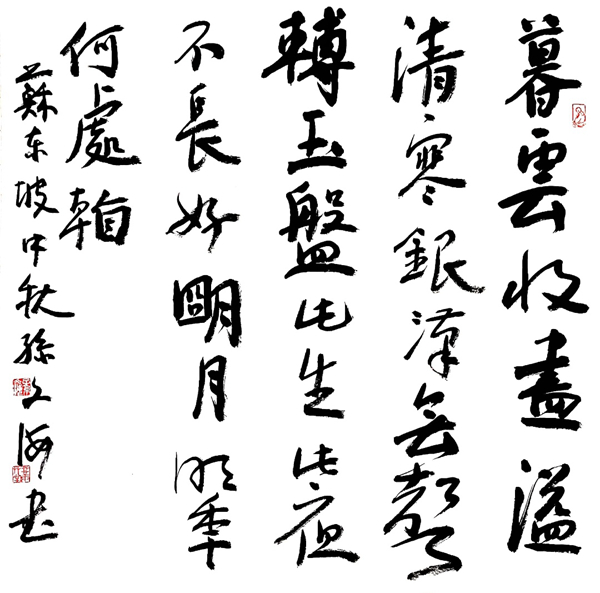 暮雲收盡溢
清寒銀漢無聲
轉玉盤此生此夜
不長好朙月明年
何處看
蘇東坡中秋孫文海書